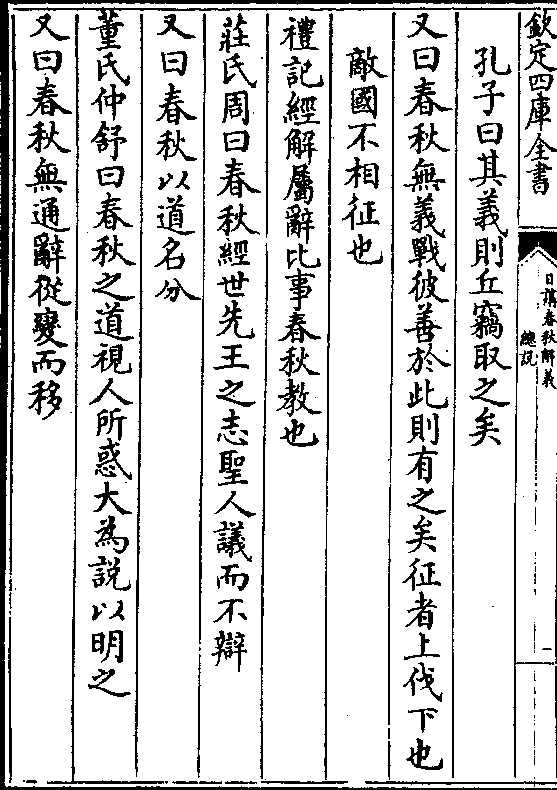 欽定四庫全書
日講春秋解義
總說
一
孔子曰其義則丘竊取之矣
又曰春秋無義戰彼善於此則有之矣征者上伐下也
敵國不相征也
禮記經解屬辭比事春秋教也
莊氏周曰春秋經世先王之志聖人議而不辯
又曰春秋以道名分
董氏仲舒曰春秋之道視人所惑大為說以明之
又曰春秋無通辭從變而移